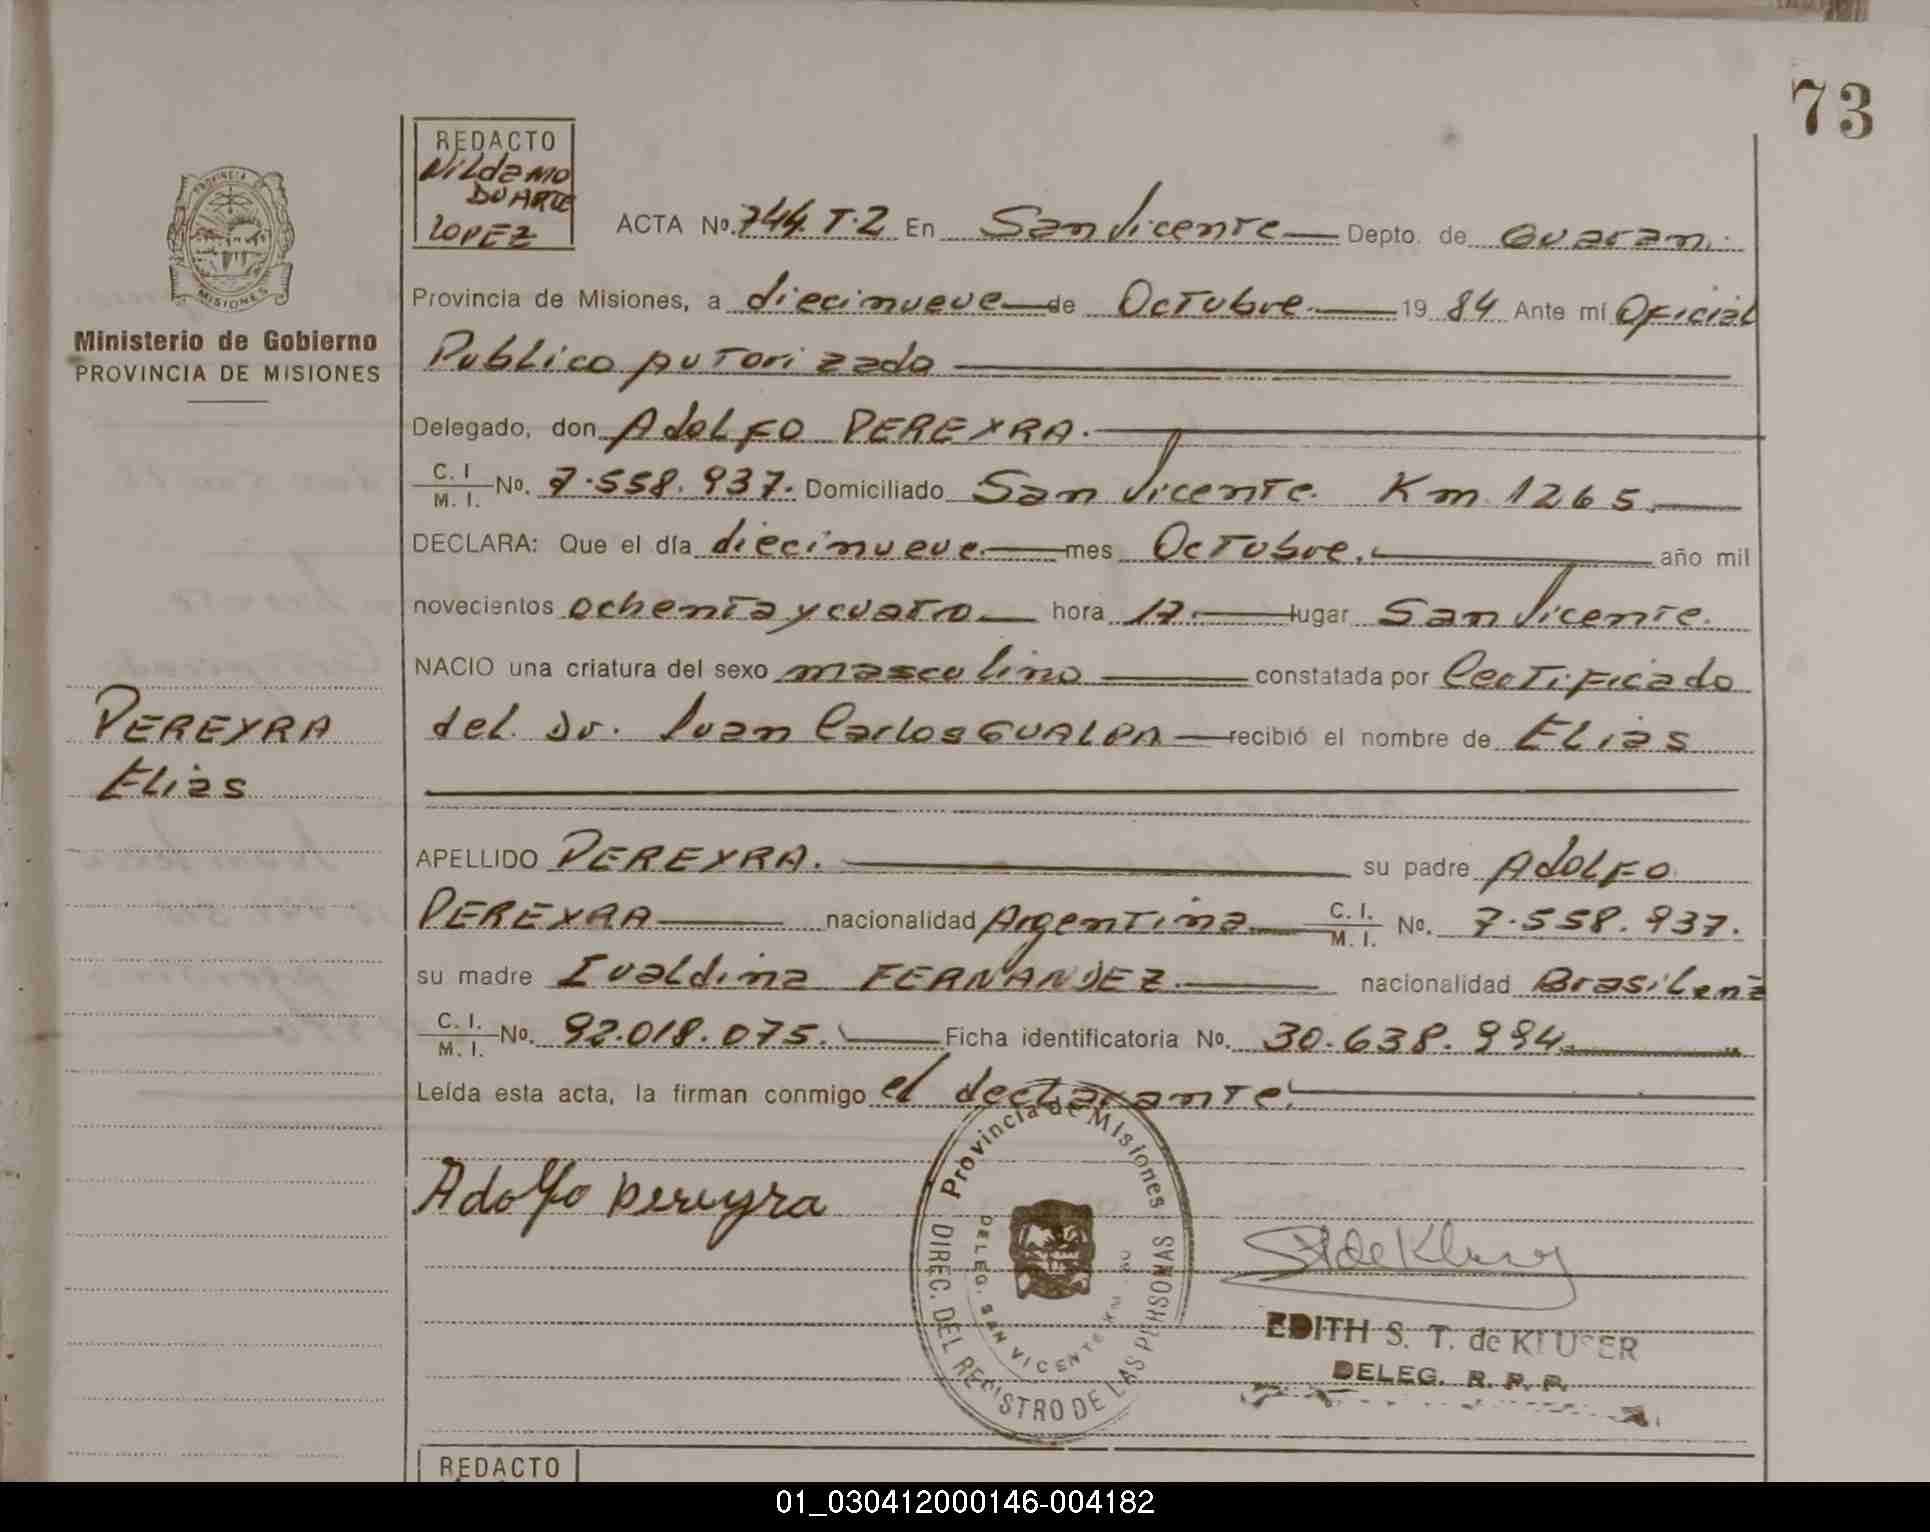 73
REDACTO
Nildamo
DUARTE
LOPEZ
PROVINCIA DE
MISIONES
Ministerio de Gobierno
PROVINCIA DE MISIONES
ACTA No. 744. T.2 En San Vicente Depto. de Guarani
Provincia de Misiones, a diecinueve de Octubre 19 84 Ante mí Oficial
Publico Autorizado
Delegado, don Adolfo PEREYRA.
C. I. / M. I. No. 7.558.937. Domiciliado San Vicente. Km 1265.
DECLARA: Que el día diecinueve mes Octubre. año mil
novecientos ochenta y cuatro hora 17 lugar San Vicente.
NACIO una criatura del sexo masculino constatada por Certificado
del. Dr. Juan Carlos GUALPA recibió el nombre de Elias
PEREYRA
Elias
APELLIDO PEREYRA. su padre Adolfo
PEREYRA nacionalidad Argentina C. I. / M. I. No. 7.558.937.
su madre Ivaldina FERNANDEZ. nacionalidad Brasileña
C. I. / M. I. No. 92.018.075. Ficha identificatoria No. 30.638.994
Leída esta acta, la firman conmigo el declarante.
Adolfo pereyra
Provincia de Misiones
DIREC. DEL REGISTRO DE LAS PERSONAS
DELEG. SAN VICENTE KM.
EDITH S. T. de KLUSER
DELEG. R. P. P.
REDACTO
01_030412000146-004182